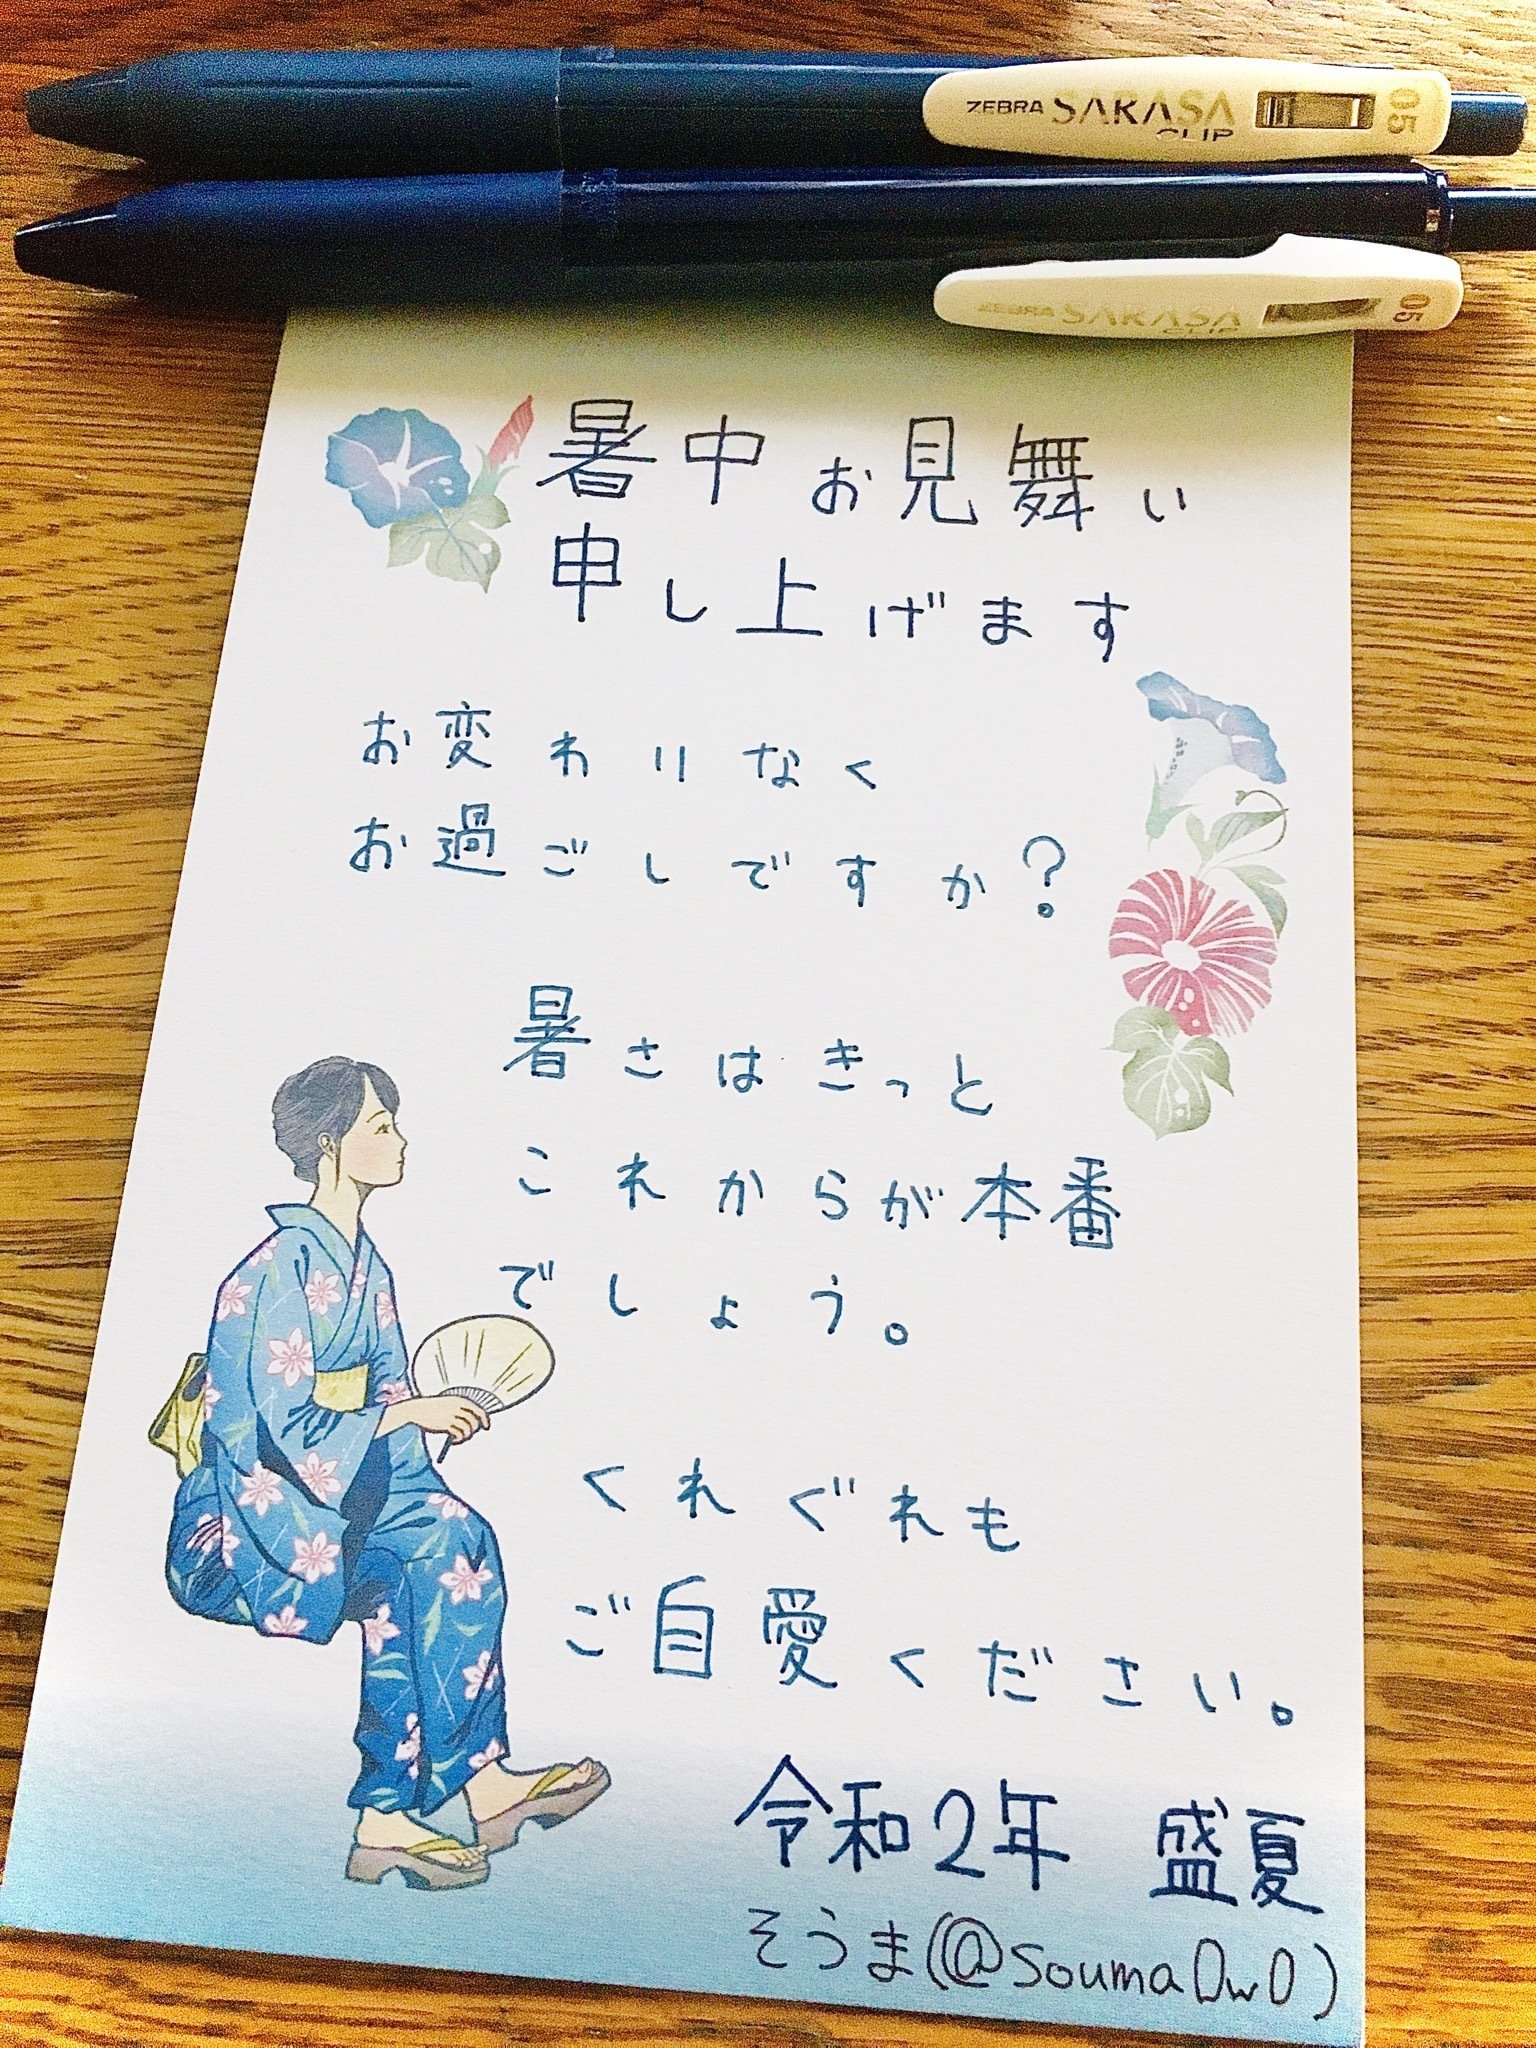 ZEBRA SARASA CLIP 05
ZEBRA SARASA CLIP 05
暑中お見舞い
申し上げます
お変わりなく
お過ごしですか?
暑さはきっと
これからが本番
でしょう。
くれぐれも
ご自愛ください。
令和2年 盛夏
そうま(@souma0w0)